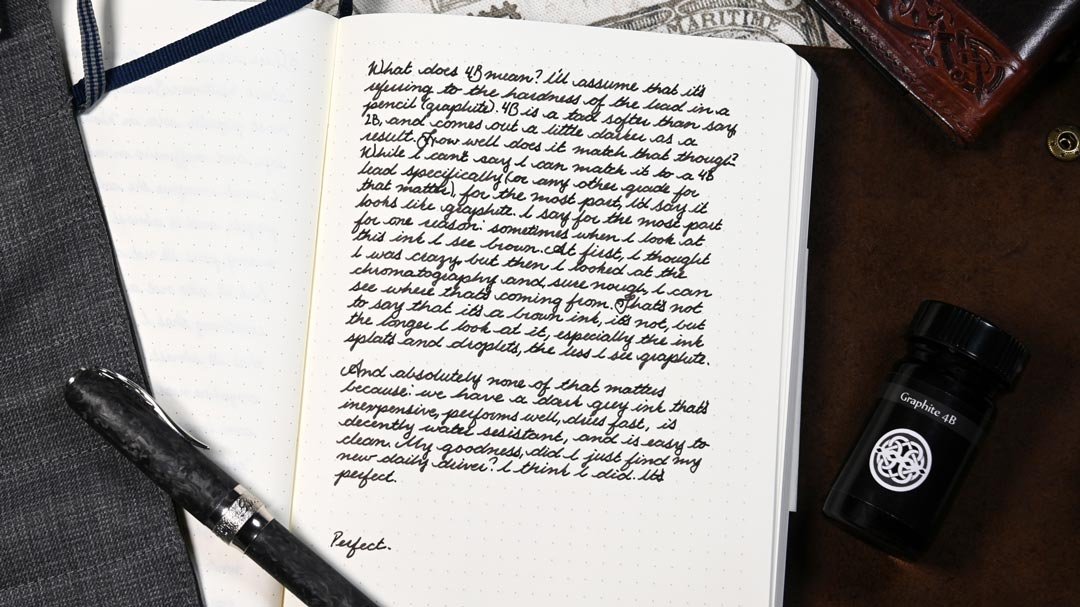 MARITIME
What does 4B mean? I'd assume that it's
refering to the hardness of the lead in a
pencil (graphite). 4B is a tad softer than say
2B, and comes out a little darker as a
result. How well does it match that though?
While I can't say I can match it to a 4B
lead specifically (or any other grade for
that matter), for the most part, I'd say it
looks like graphite. I say for the most part
for one reason: sometimes when I look at
this ink I see brown. At first, I thought
I was crazy, but then I looked at the
chromatography and sure nough, I can
see where that's coming from. That's not
to say that it's a brown ink, it's not, but
the longer I look at it, especially the ink
splats and droplets, the less I see graphite.
And absolutely none of that matters
because: we have a dark grey ink that's
inexpensive, performs well, dries fast, is
decently water resistant, and is easy to
clean. My goodness, did I just find my
new daily driver? I think I did. It's
perfect.
Perfect.
Graphite 4B